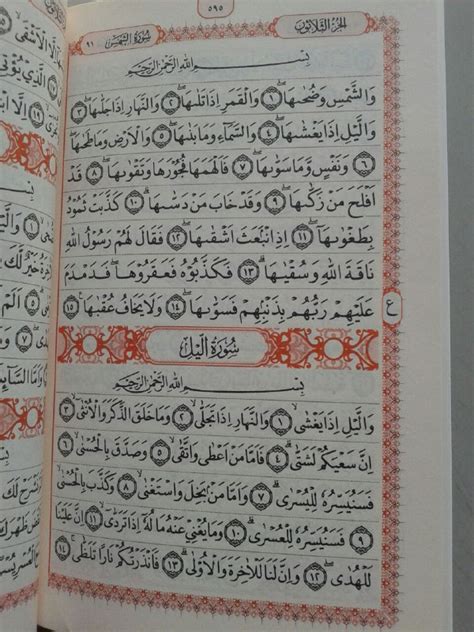 الجزء الثلاثون
٥٩٥
سورة الشمس ٩١
بِسْمِ اللهِ الرَّحْمٰنِ الرَّحِيْمِ
وَالشَّمْسِ وَضُحٰىهَا ۖ ١ وَالْقَمَرِ اِذَا تَلٰىهَا ۖ ٢ وَالنَّهَارِ اِذَا جَلّٰىهَا ۖ ٣
وَالَّيْلِ اِذَا يَغْشٰىهَا ۖ ٤ وَالسَّمَاۤءِ وَمَا بَنٰىهَا ۖ ٥ وَالْاَرْضِ وَمَا طَحٰىهَا ۖ
٦ وَنَفْسٍ وَّمَا سَوّٰىهَا ۖ ٧ فَاَلْهَمَهَا فُجُوْرَهَا وَتَقْوٰىهَا ۖ ٨ قَدْ
اَفْلَحَ مَنْ زَكّٰىهَا ۖ ٩ وَقَدْ خَابَ مَنْ دَسّٰىهَا ۗ ١٠ كَذَّبَتْ ثَمُوْدُ
بِطَغْوٰىهَآ ۖ ١١ اِذِ انْۢبَعَثَ اَشْقٰىهَا ۖ ١٢ فَقَالَ لَهُمْ رَسُوْلُ اللهِ
نَاقَةَ اللهِ وَسُقْيٰهَا ۗ ١٣ فَكَذَّبُوْهُ فَعَقَرُوْهَا ۖ فَدَمْدَمَ
عَلَيْهِمْ رَبُّهُمْ بِذَنْۢبِهِمْ فَسَوّٰىهَا ۖ ١٤ وَلَا يَخَافُ عُقْبٰهَا ١٥
ع
سُوْرَةُ الَّيْلِ
بِسْمِ اللهِ الرَّحْمٰنِ الرَّحِيْمِ
وَالَّيْلِ اِذَا يَغْشٰى ۙ ١ وَالنَّهَارِ اِذَا تَجَلّٰى ۙ ٢ وَمَا خَلَقَ الذَّكَرَ وَالْاُنْثٰى ۙ ٣
اِنَّ سَعْيَكُمْ لَشَتّٰى ۗ ٤ فَاَمَّا مَنْ اَعْطٰى وَاتَّقٰى ۙ ٥ وَصَدَّقَ بِالْحُسْنٰى ۙ ٦
فَسَنُيَسِّرُهٗ لِلْيُسْرٰى ۗ ٧ وَاَمَّا مَنْۢ بَخِلَ وَاسْتَغْنٰى ۙ ٨ وَكَذَّبَ بِالْحُسْنٰى ۙ
٩ فَسَنُيَسِّرُهٗ لِلْعُسْرٰى ۗ ١٠ وَمَا يُغْنِيْ عَنْهُ مَالُهٗٓ اِذَا تَرَدّٰى ۙ ١١ اِنَّ عَلَيْنَا
لَلْهُدٰى ۖ ١٢ وَاِنَّ لَنَا لَلْاٰخِرَةَ وَالْاُوْلٰى ۗ ١٣ فَاَنْذَرْتُكُمْ نَارًا تَلَظّٰى ۚ ١٤